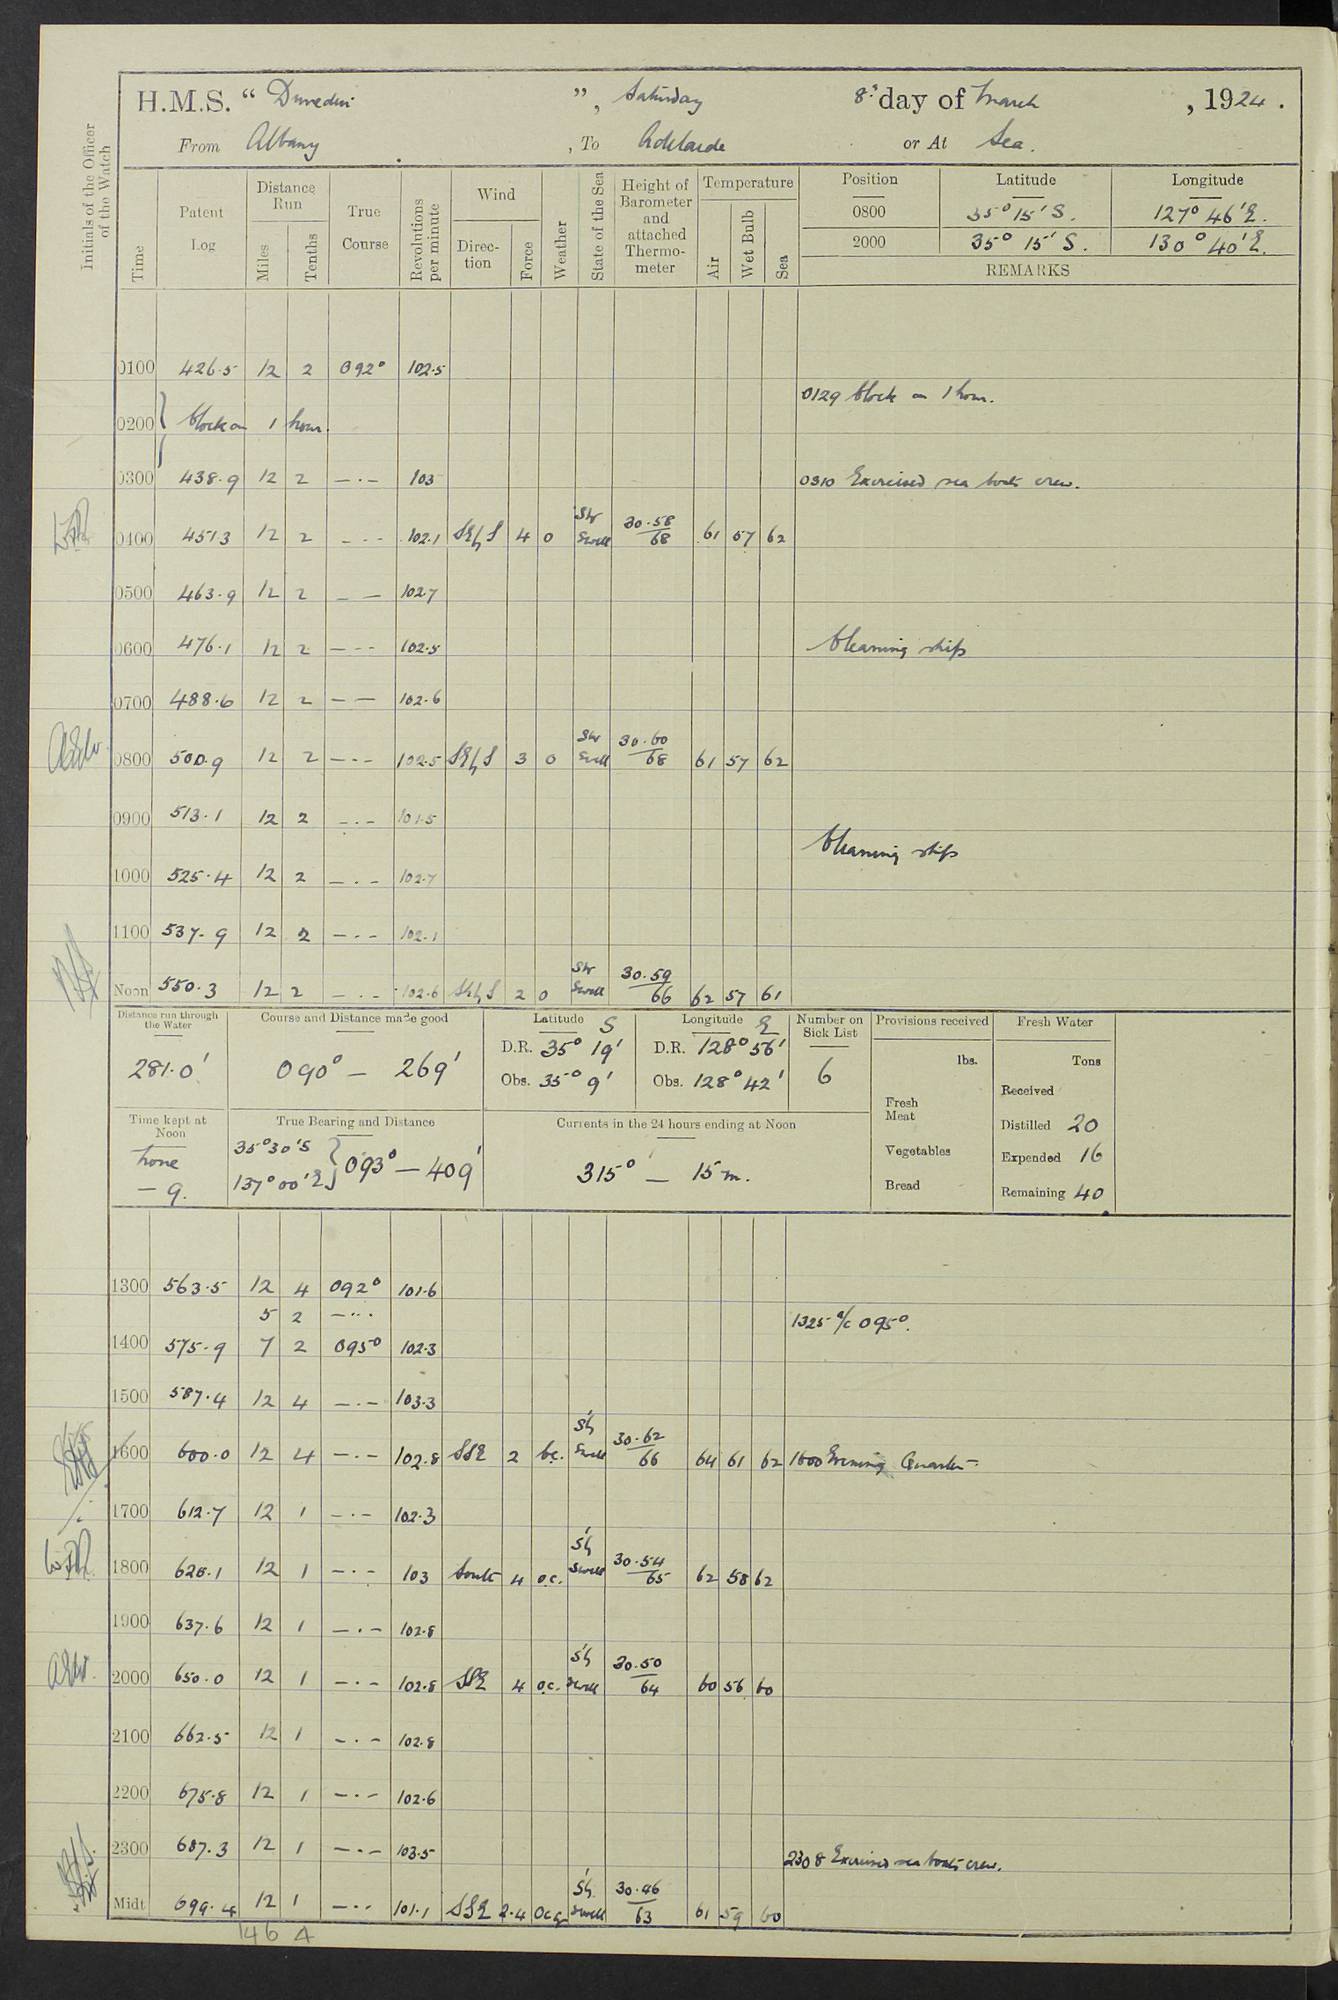 H.M.S. " Dunedin ", Saturday 8th day of March, 1924.
From Albany, To Adelaide or At Sea.
Initials of the Officer of the Watch
Time
Patent Log
Distance Run
Miles
Tenths
True Course
Revolutions per minute
Wind
Direction
Force
Weather
State of the Sea
Height of Barometer and attached Thermometer
Temperature
Air
Wet Bulb
Sea
Position Latitude Longitude
0800 35° 15' S. 127° 46' E.
2000 35° 15' S. 130° 40' E.
REMARKS
0100 426.5 12 2 092° 102.5
0129 Clock on 1 hour.
0200 Clock on 1 hour.
0300 438.9 12 2 — · — 103
0310 Exercised sea boats crew.
0400 451.3 12 2 — · — 102.1 SE by S 4 o Sly Swell 30.58/68 61 57 62
0500 463.9 12 2 — — 102.7
0600 476.1 12 2 — · — 102.5 Cleaning ship
0700 488.6 12 2 — — 102.6
0800 500.9 12 2 — · — 102.5 SE by S 3 o Sly Swell 30.60/68 61 57 62
0900 513.1 12 2 — · — 101.5
Cleaning ship
1000 525.4 12 2 — · — 102.7
1100 537.9 12 2 — · — 102.1
Noon 550.3 12 2 — · — 102.6 SE by S 2 o Sly Swell 30.59/66 62 57 61
Distance run through the Water
281.0'
Course and Distance made good
090° — 269'
Latitude S
D.R. 35° 19'
Obs. 35° 9'
Longitude E
D.R. 128° 56'
Obs. 128° 42'
Number on Sick List
6
Provisions received
lbs.
Fresh Meat
Vegetables
Bread
Fresh Water
Tons
Received
Distilled 20
Expended 16
Remaining 40
Time kept at Noon
Zone
— 9.
True Bearing and Distance
35° 30' S
137° 00' E } 093° — 409'
Currents in the 24 hours ending at Noon
315° — 15 m.
1300 563.5 12 4 092° 101.6
5 2 — · · 1325 a/c 095°.
1400 575.9 7 2 095° 102.3
1500 587.4 12 4 — · — 103.3
1600 600.0 12 4 — · — 102.8 SSE 2 bc. Sly Swell 30.62/66 64 61 62 1600 Evening Quarters
1700 612.7 12 1 — · — 102.3
1800 625.1 12 1 — · — 103 South 4 oc. Sly Swell 30.54/65 62 58 62
1900 637.6 12 1 — · — 102.8
2000 650.0 12 1 — · — 102.8 SSE 4 oc. Sly Swell 30.50/64 60 56 60
2100 662.5 12 1 — · — 102.8
2200 675.8 12 1 — · — 102.6
2300 687.3 12 1 — · — 103.5
2308 Exercised sea boats crew.
Midt 699.4 12 1 — · — 101.1 SSE 2.4 ocq Sly Swell 30.46/63 61 59 60
146 4